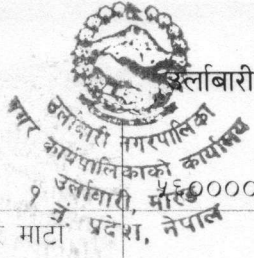 उर्लाबारी
उर्लाबारी नगरपालिका
नगर कार्यपालिकाको कार्यालय
उर्लाबारी, मोरङ
१ नं प्रदेश, नेपाल
५६००००
माटो